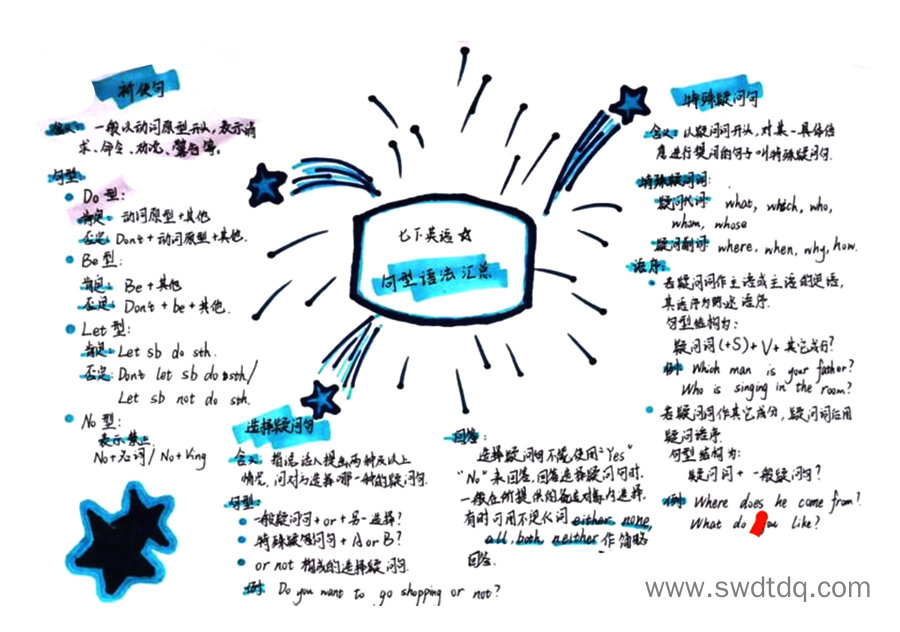 七下英语
句型语法汇总
祈使句
含义: 一般以动词原型开头,表示请
求、命令、劝说、警告等。
句型:
Do型:
肯定: 动词原型+其他
否定: Don't+动词原型+其他.
Be型:
肯定: Be+其他
否定: Don't + be + 其他.
Let型:
肯定: Let sb do sth.
否定: Don't let sb do sth/
Let sb not do sth.
No型:
表示禁止
No+名词/ No+Ving
选择疑问句
含义: 指说话人提出两种及以上
情况, 问对方选择哪一种的疑问句.
句型:
一般疑问句+or+另一选择?
特殊疑问句+A or B?
or not 构成的选择疑问句.
例: Do you want to go shopping or not?
回答:
选择疑问句不能使用"Yes"
"No"来回答,回答选择疑问句时.
一般在所提供的备选对象内选择.
有时可用不定代词 either, none,
all, both, neither 作简略
回答.
特殊疑问句
含义: 以疑问词开头, 对某一具体信
息进行提问的句子叫特殊疑问句.
特殊疑问词:
疑问代词 what, which, who,
whom, whose
疑问副词 where, when, why, how.
语序:
若疑问词作主语或主语的定语,
其语序为陈述语序.
句型结构为:
疑问词(+S)+V+其它成分?
例 Which man is your father?
Who is singing in the room?
若疑问词作其它成分, 疑问词后用
疑问语序.
句型结构为:
疑问词+一般疑问句?
例: Where does he come from?
What do ou like?
www.swdtdq.com